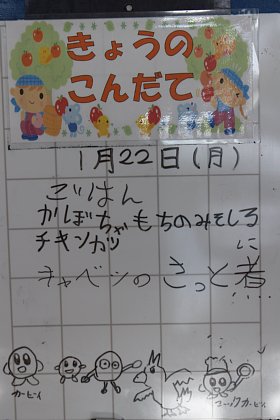 きょうの
こんだて
1月22日(月)
ごはん
かぼちゃもちのみそしる
チキンカツ
キャベツのさっと煮
に
カービィ
コックカービィ